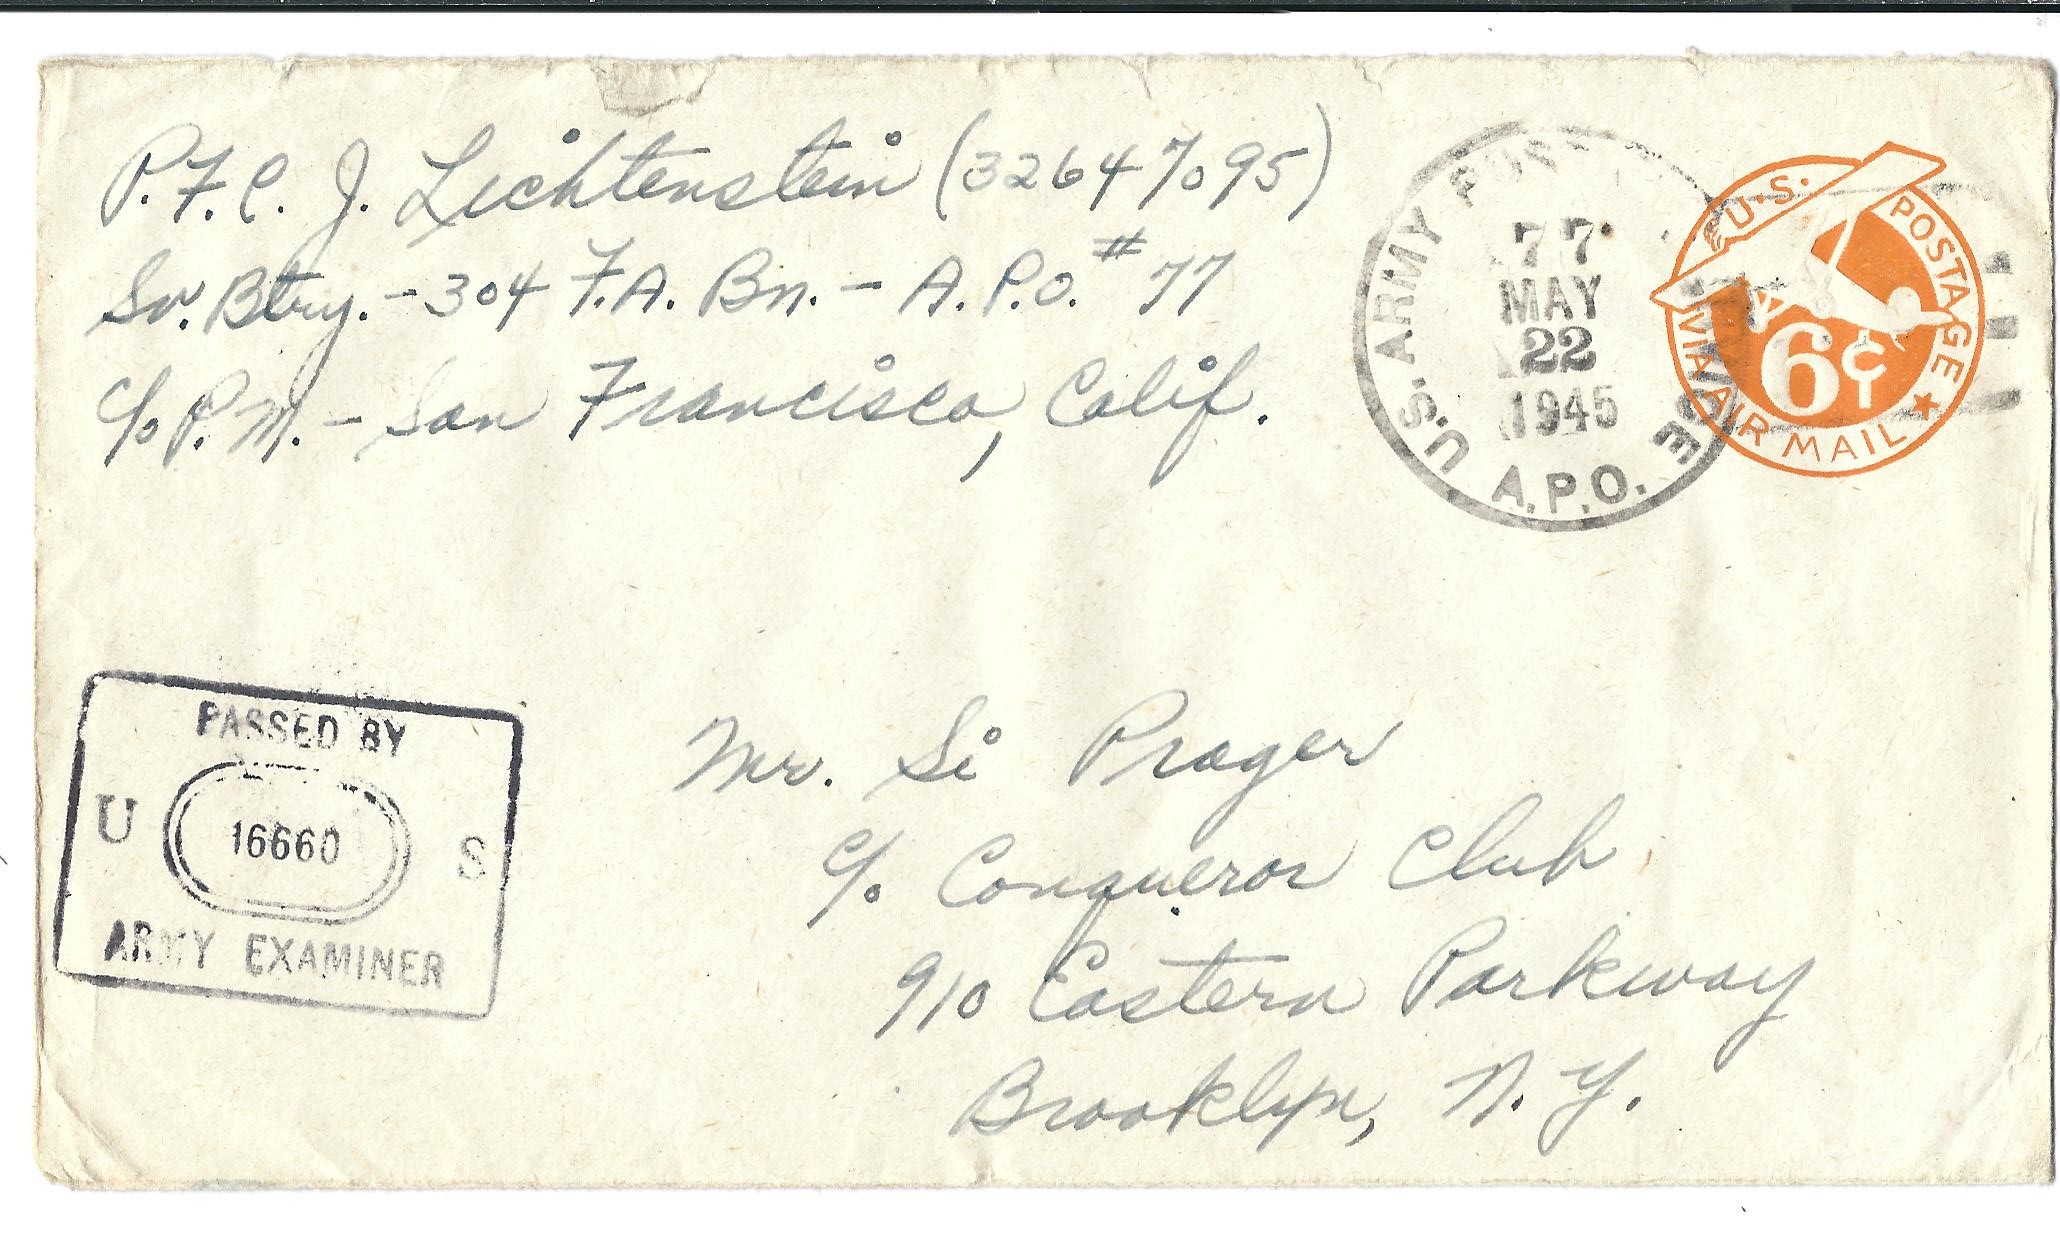 P.F.C. J. Lichtenstein (32647095)
Sv. Btry. - 304 F.A. Bn. - A.P.O. # 77
c/o P.M. - San Francisco, Calif.
U.S. ARMY POSTAL SERVICE
77
MAY
22
1945
A.P.O.
U.S. POSTAGE
6¢
VIA AIR MAIL
PASSED BY
U 16660 S
ARMY EXAMINER
Mr. Si Prager
c/o Conqueror Club
910 Eastern Parkway
Brooklyn, N.Y.